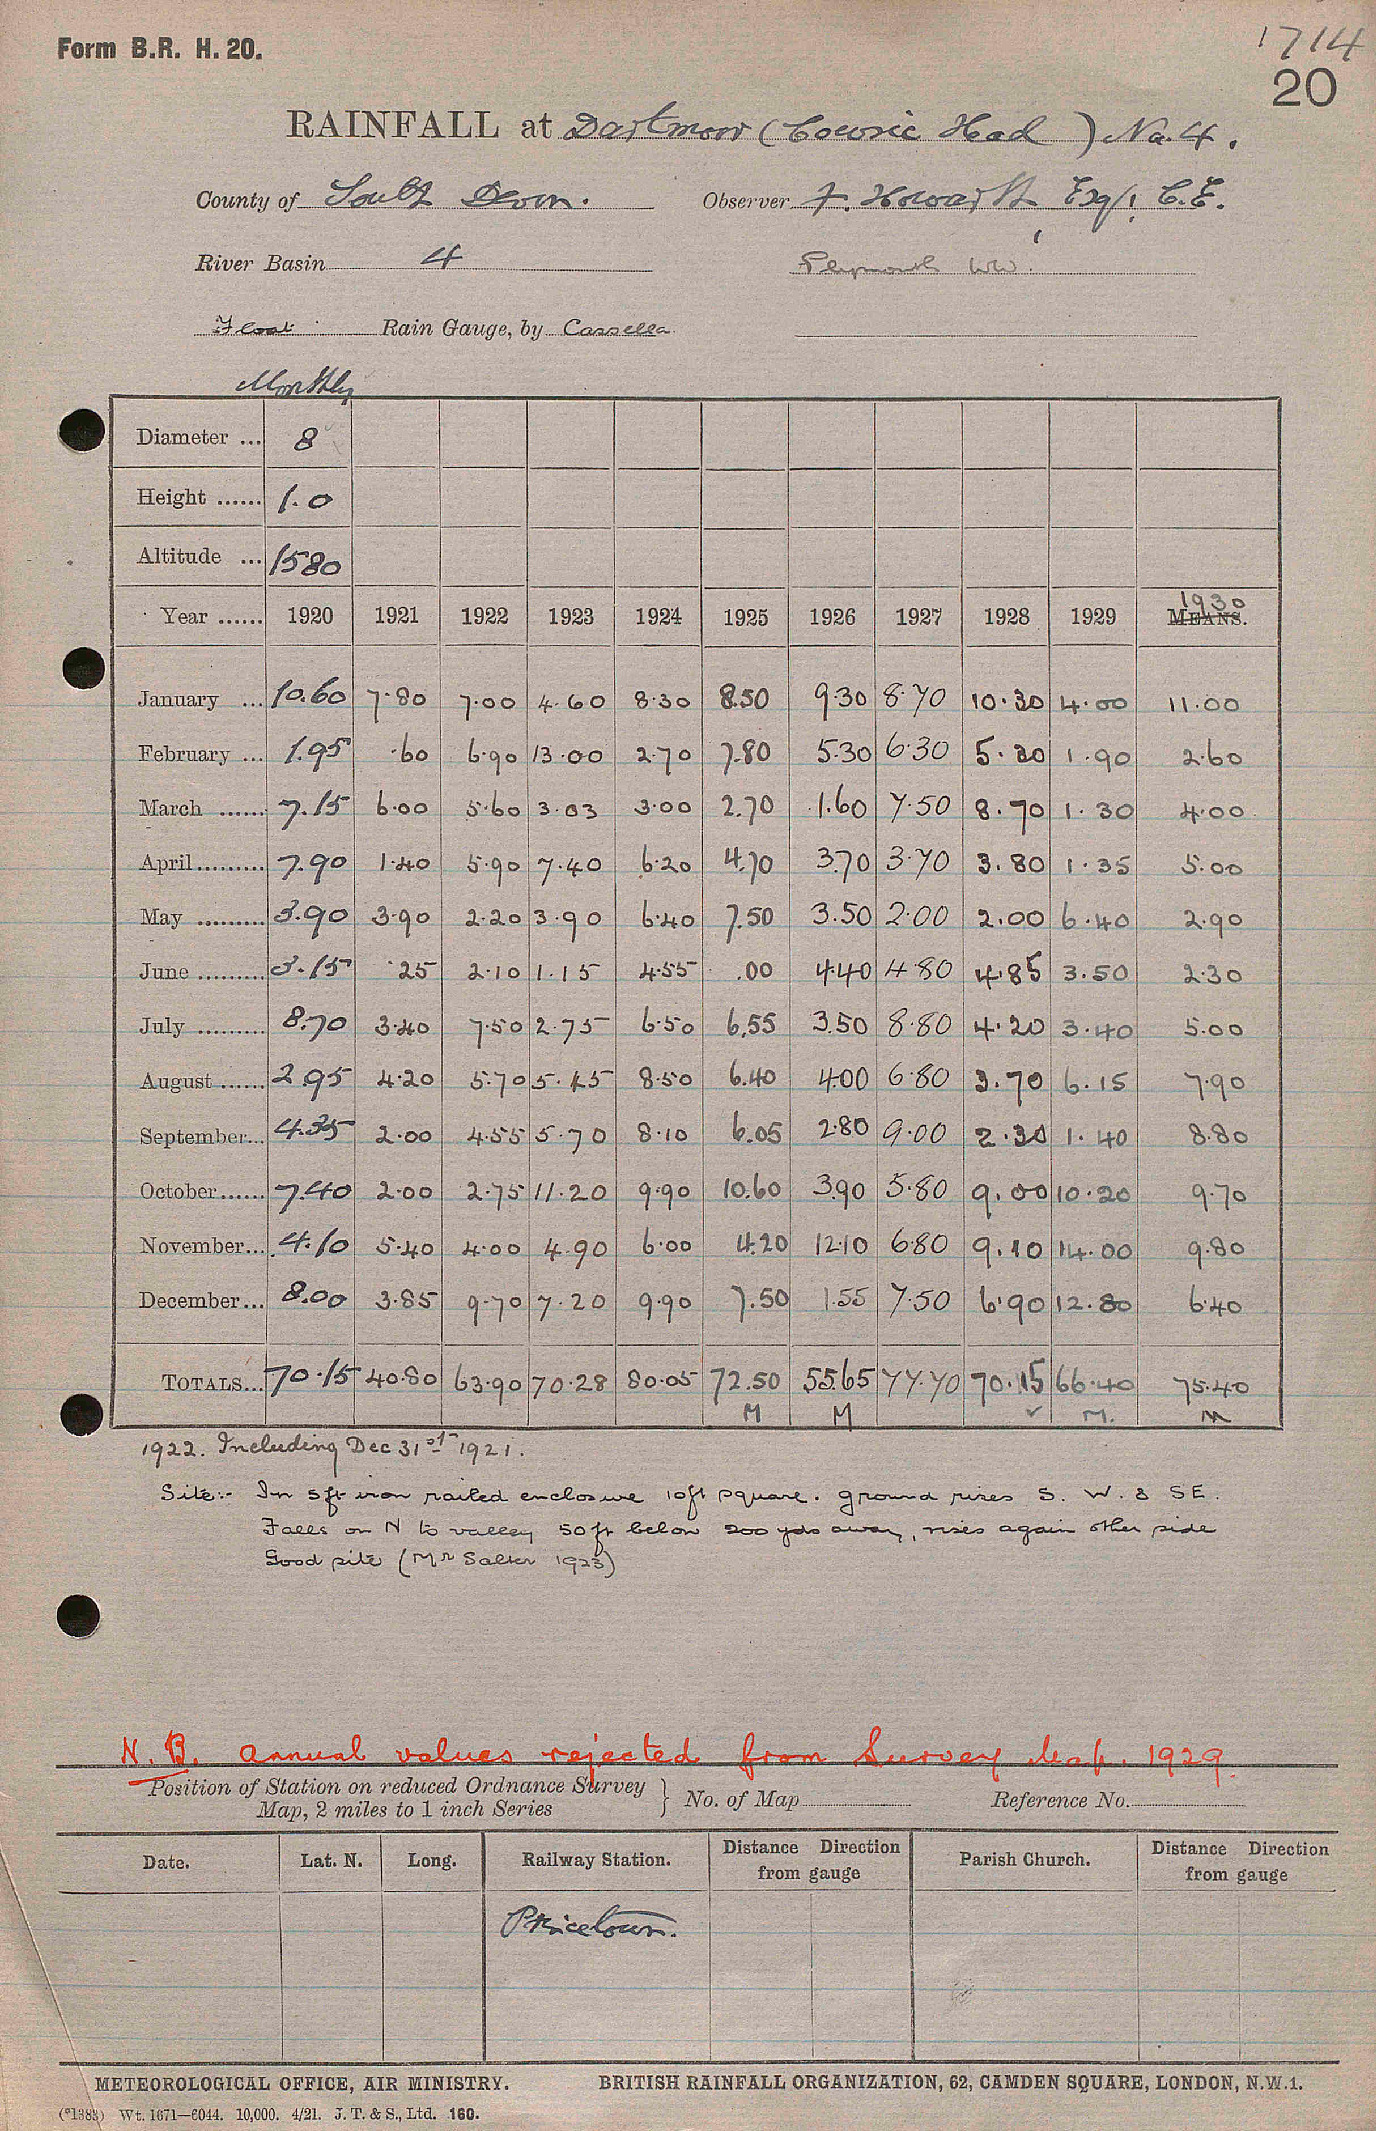 Form B.R. H. 20.
1714
20
RAINFALL at Dartmoor (Cowsic Head) No. 4.
County of South Devon. Observer F. Howarth Esq. C.E.
River Basin 4 Plymouth WW.
Float Rain Gauge, by Cassella
Monthly
Diameter ... 8
Height ...... 1.0
Altitude ... 1580
Year ...... 1920 1921 1922 1923 1924 1925 1926 1927 1928 1929 MEANS. 1930
January ... 10.60 7.80 7.00 4.60 8.30 8.50 9.30 8.70 10.30 4.00 11.00
February ... 1.95 .60 6.90 13.00 2.70 7.80 5.30 6.30 5.30 1.90 2.60
March ...... 7.15 6.00 5.60 3.03 3.00 2.70 1.60 7.50 8.70 1.30 4.00
April......... 7.90 1.40 5.90 7.40 6.20 4.70 3.70 3.70 3.80 1.35 5.00
May ......... 3.90 3.90 2.20 3.90 6.40 7.50 3.50 2.00 2.00 6.40 2.90
June ......... 3.15 .25 2.10 1.15 4.55 .00 4.40 4.80 4.85 3.50 2.30
July ......... 8.70 3.40 7.50 2.75 6.50 6.55 3.50 8.80 4.20 3.40 5.00
August ...... 2.95 4.20 5.70 5.45 8.50 6.40 4.00 6.80 3.70 6.15 7.90
September... 4.35 2.00 4.55 5.70 8.10 6.05 2.80 9.00 2.30 1.40 8.80
October...... 7.40 2.00 2.75 11.20 9.90 10.60 3.90 5.80 9.00 10.20 9.70
November... 4.10 5.40 4.00 4.90 6.00 4.20 12.10 6.80 9.10 14.00 9.80
December... 8.00 3.85 9.70 7.20 9.90 7.50 1.55 7.50 6.90 12.80 6.40
TOTALS... 70.15 40.80 63.90 70.28 80.05 72.50 55.65 77.70 70.15 66.40 75.40
M M ✓ M. M
1922. Including Dec 31st 1921.
Site:- In 5ft iron railed enclosure 10ft square. ground rises S. W. & SE.
Falls on N to valley 50 ft below 200 yds away, rises again other side
Good site (Mr Salter 1923)
N.B. Annual values rejected from Survey Map. 1929.
Position of Station on reduced Ordnance Survey
Map, 2 miles to 1 inch Series } No. of Map Reference No.
Date. Lat. N. Long. Railway Station. Distance Direction from gauge Parish Church. Distance Direction from gauge
Princetown.
METEOROLOGICAL OFFICE, AIR MINISTRY. BRITISH RAINFALL ORGANIZATION, 62, CAMDEN SQUARE, LONDON, N.W.1.
(*1383) Wt. 1671—6044. 10,000. 4/21. J. T. & S., Ltd. 160.